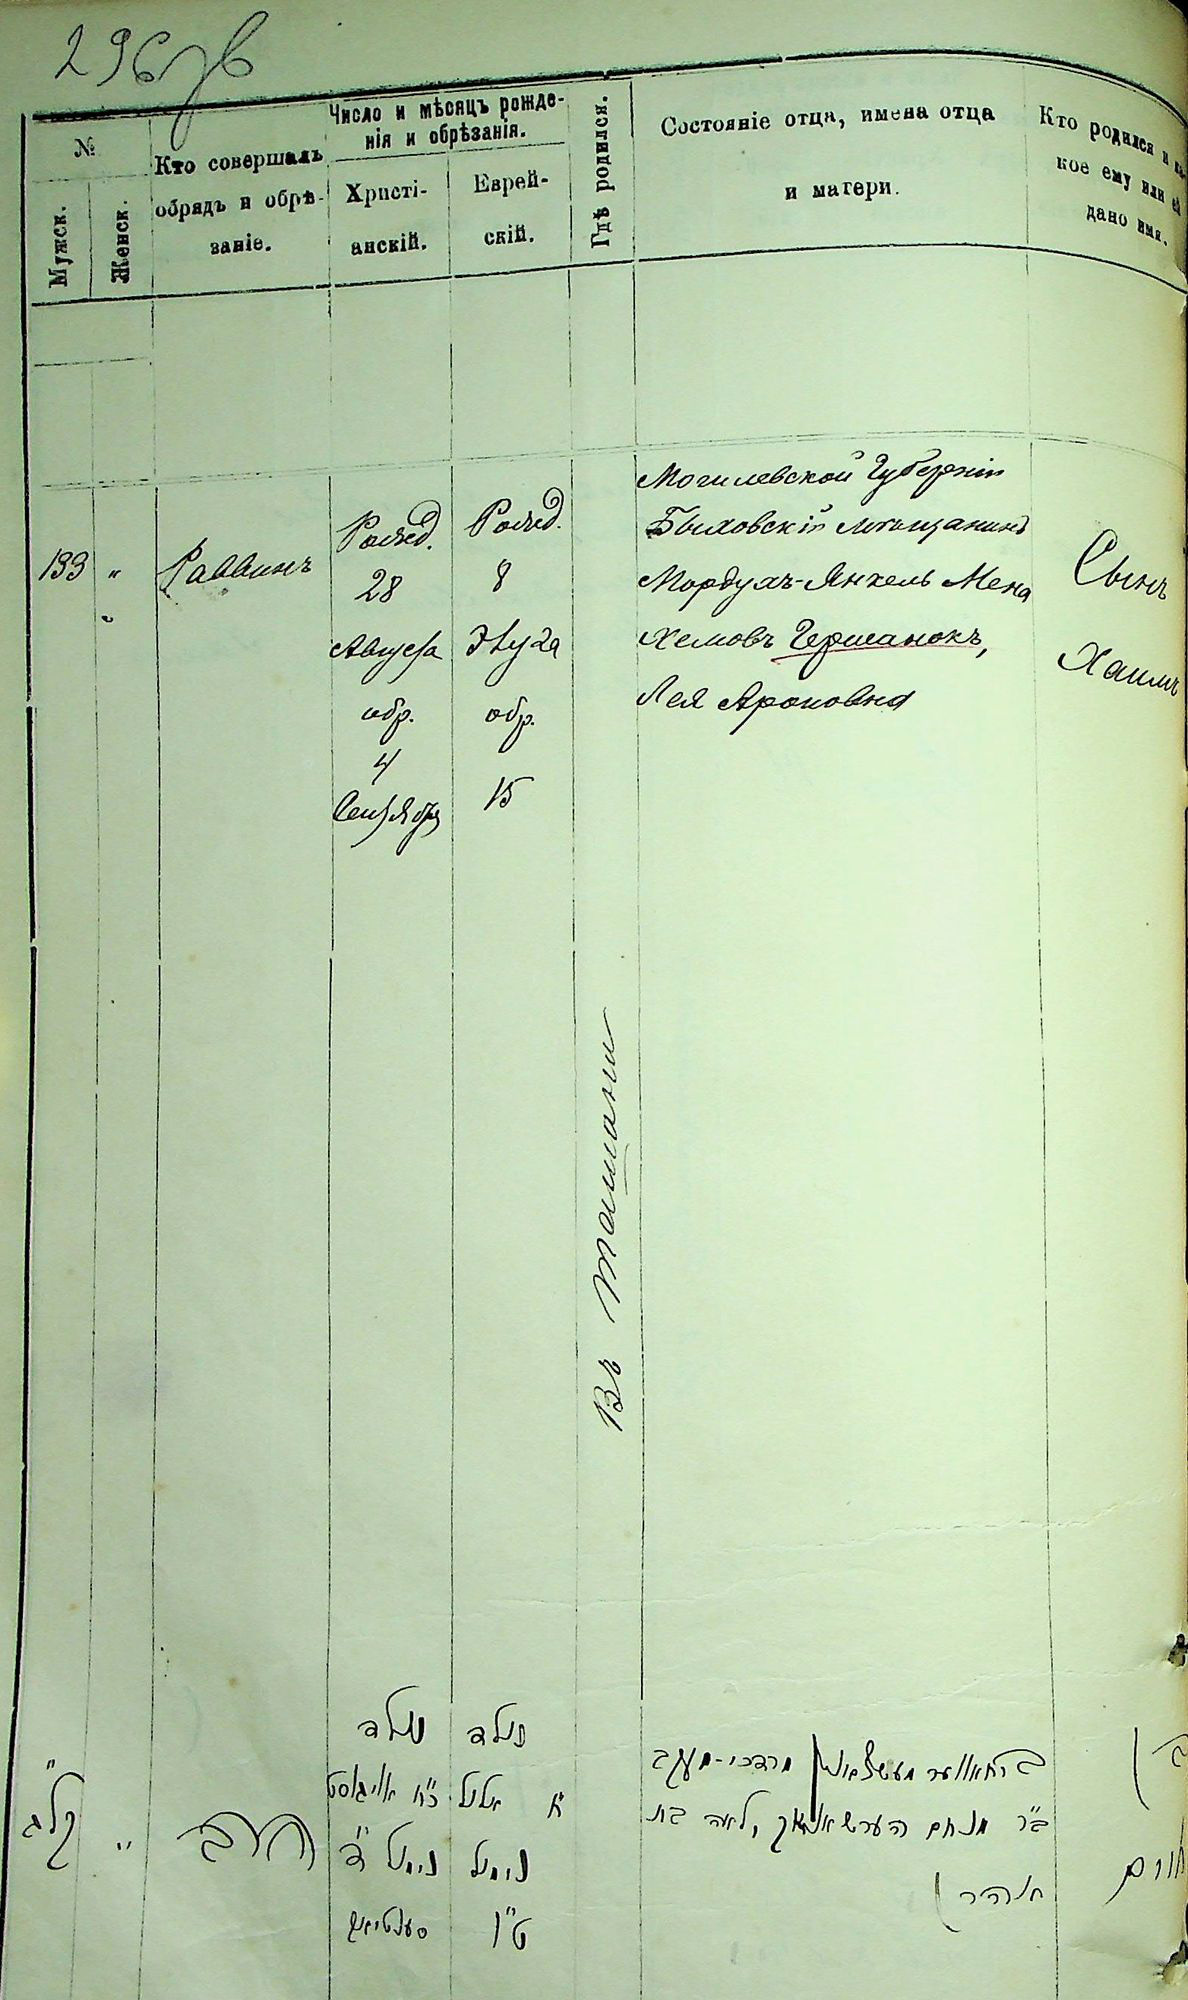 296 об
№
Мужск.
Женск.
Кто совершалъ
обрядъ и обрѣ-
заніе.
Число и мѣсяцъ рожде-
нія и обрѣзанія.
Христі-
анскій.
Еврей-
скій.
Гдѣ родился.
Состояніе отца, имена отца
и матери.
Кто родился и ка-
кое ему или ей
дано имя.
133
"
Раввинъ
Рожд.
28
Августа
обр.
4
Сентября
Рожд.
8
Элула
обр.
15
Въ
Могилевской Губерніи
Быховскій мѣщанинъ
Мордухъ-Янкель Мена
хемовъ Гершанокъ,
Лея Ароновна
Сынъ
Хаимъ
קל"ג
"
הרב
נולד
כ"ח אויגוסט
נימול ד"
סענטיאב
נולד
ח" אלול
נימול
ט"ו
מרדכי-יעקב
ב"ר מנחם הערשאנאק, לאה בת
אהרן
חיים